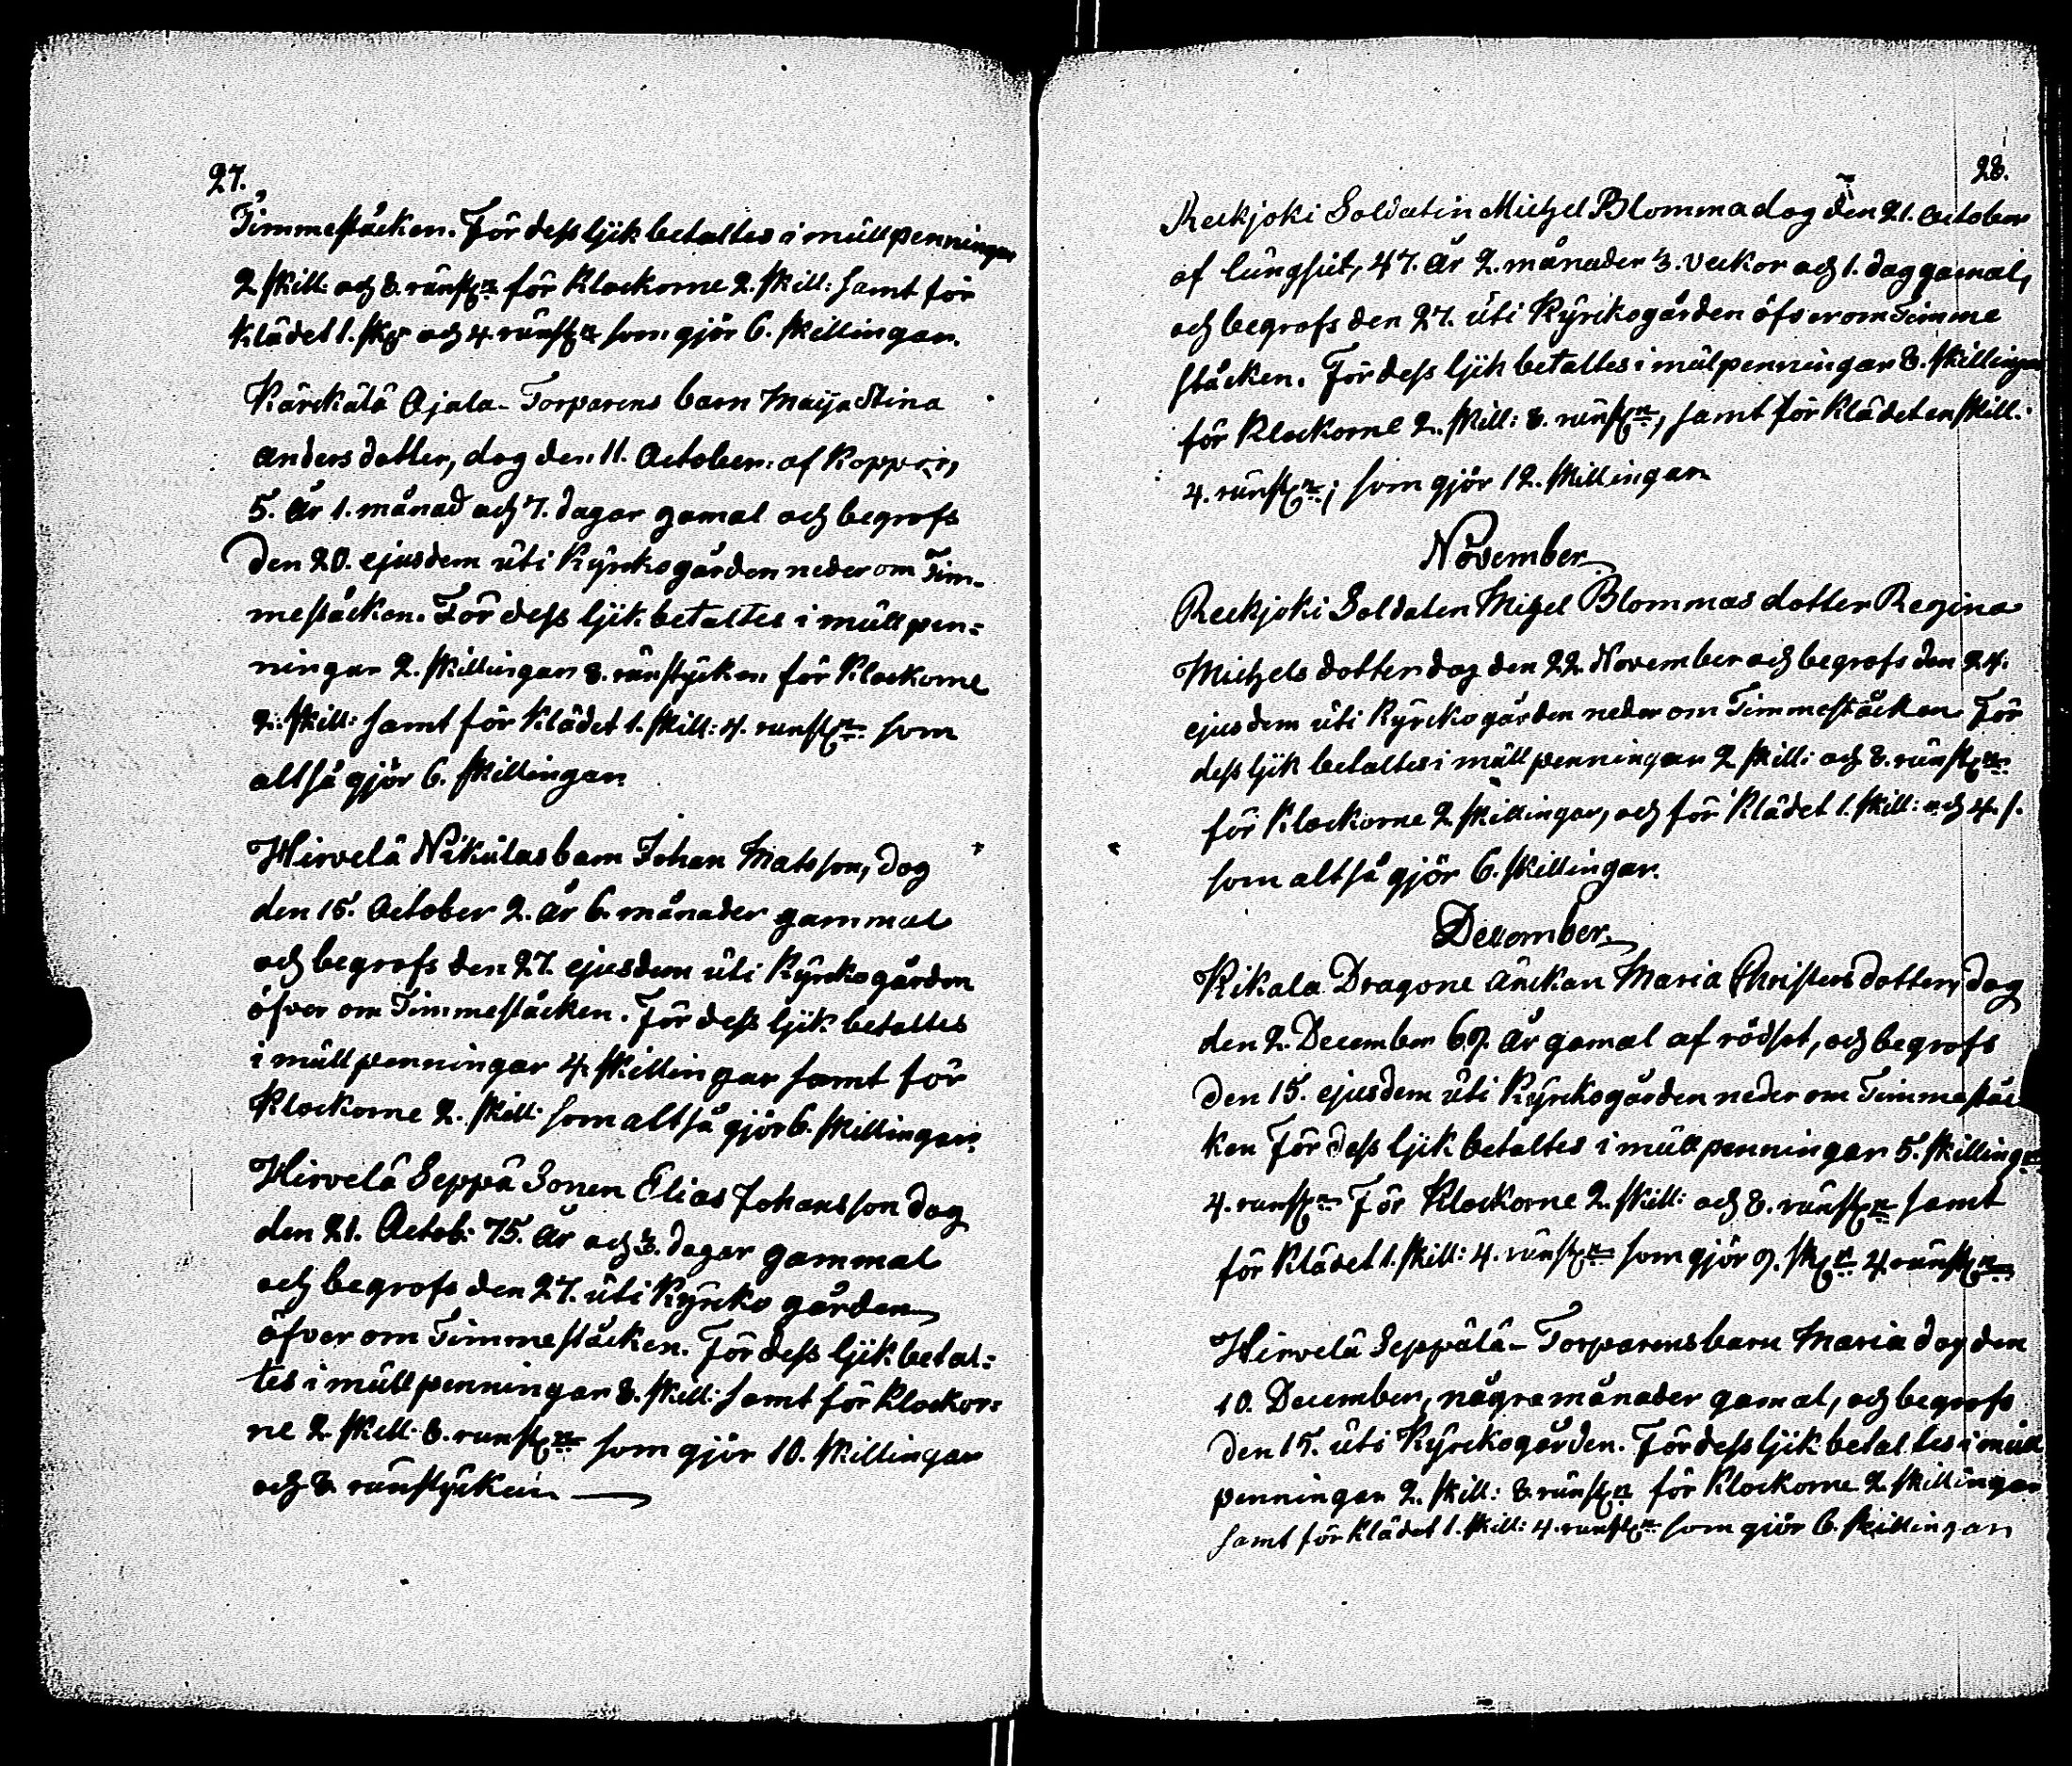 27.
Timmestäcken. För dess lijk betaltes i mullpenningar
2 skill: och 8. runst:n för klockorne 2. skill: samt för
klädet 1. sk:r och 4. runst:r som gjör 6. skillingar.
Kärckälä Ojala-Torparens barn Maija Stina
Anders dotter, dog den 11. October: af koppor,
5. år 1. månad och 7. dagar gamal och begrofs
den 20. ejusdem uti Kyrckogården neder om Tim-
mestäcken. För dess lijk betaltes i mullpen=
ningar 2. skillingar 8. runstycken för klockorne
2. skill: samt för klädet 1. skill: 4. runst:n som
altså gjör 6. skillingar
Hirvelä Nikulas barn Johan Matsson, dog
den 15. October 2. år 6. månader gammal
och begrofs den 27. ejusdem uti Kyrckogården
öfver om Timmestäcken. För dess lijk betaltes
i mullpenningar 4. skillingar samt för
klockorne 2. skill: som altså gjör 6. skillingar
Hirvelä Seppä Sonen Elias Johansson dog
den 21. Octob: 75. år och 3. dagar gammal
och begrofs den 27. uti Kyrcko gården
öfver om Timmestäcken. För dess lijk betal=
tes i mullpenningar 8. skill: samt för klockor=
ne 2. skill: 8. runst:n som gjör 10. skillingar
och 8. runstycken
28.
Reckjoki Soldaten Michel Blomma dog den 21. October
af lungsict, 47. år 2. månader 3. veckor och 1. dag gamal,
och begrofs den 27. uti Kyrckogården öfver om Timme
stäcken. För dess lijk betaltes i mulpenningar 8. skillingar
för klockorne 2. skill: 8. runst:n, samt för klädet en skill:
4. runst:n; som gjör 12. skillingar
November
Reckjoki Soldaten Michel Blommas dotter Regina
Michels dotter dog den 22. November och begrofs den 24.
ejusdem uti Kyrckogården neder om Timmestäcken För
dess lijk betaltes i mullpenningar 2 skill: och 8. runst:n
för klockorne 2 skillingar, och för klädet 1. skill: och 4. s.
som altså gjör 6. skillingar.
December
Kikala Dragone änckan Maria Christersdotter, dog
den 2. December 69. år gamal af rödsot, och begrofs
den 15. ejusdem uti Kyrckogården neder om Timmestäc
ken För dess lijk betaltes i mullpenningar 5. skillingar
4. runst:n För klockorne 2. skill: och 8. runst:n samt
för klädet 1. skill: 4. runst:n som gjör 9. sk:r 4. runst:n
Hirvelä Seppälä-Torparens barn Maria dog den
10. December, några månader gamal, och begrofs
den 15. uti Kyrckogården. För dess lijk betaltes i mull
penningar 2. skill: 8. runst:n för klockorne 2. skillingar
samt för klädet 1. skill: 4. runst:n som gjör 6. skillingar